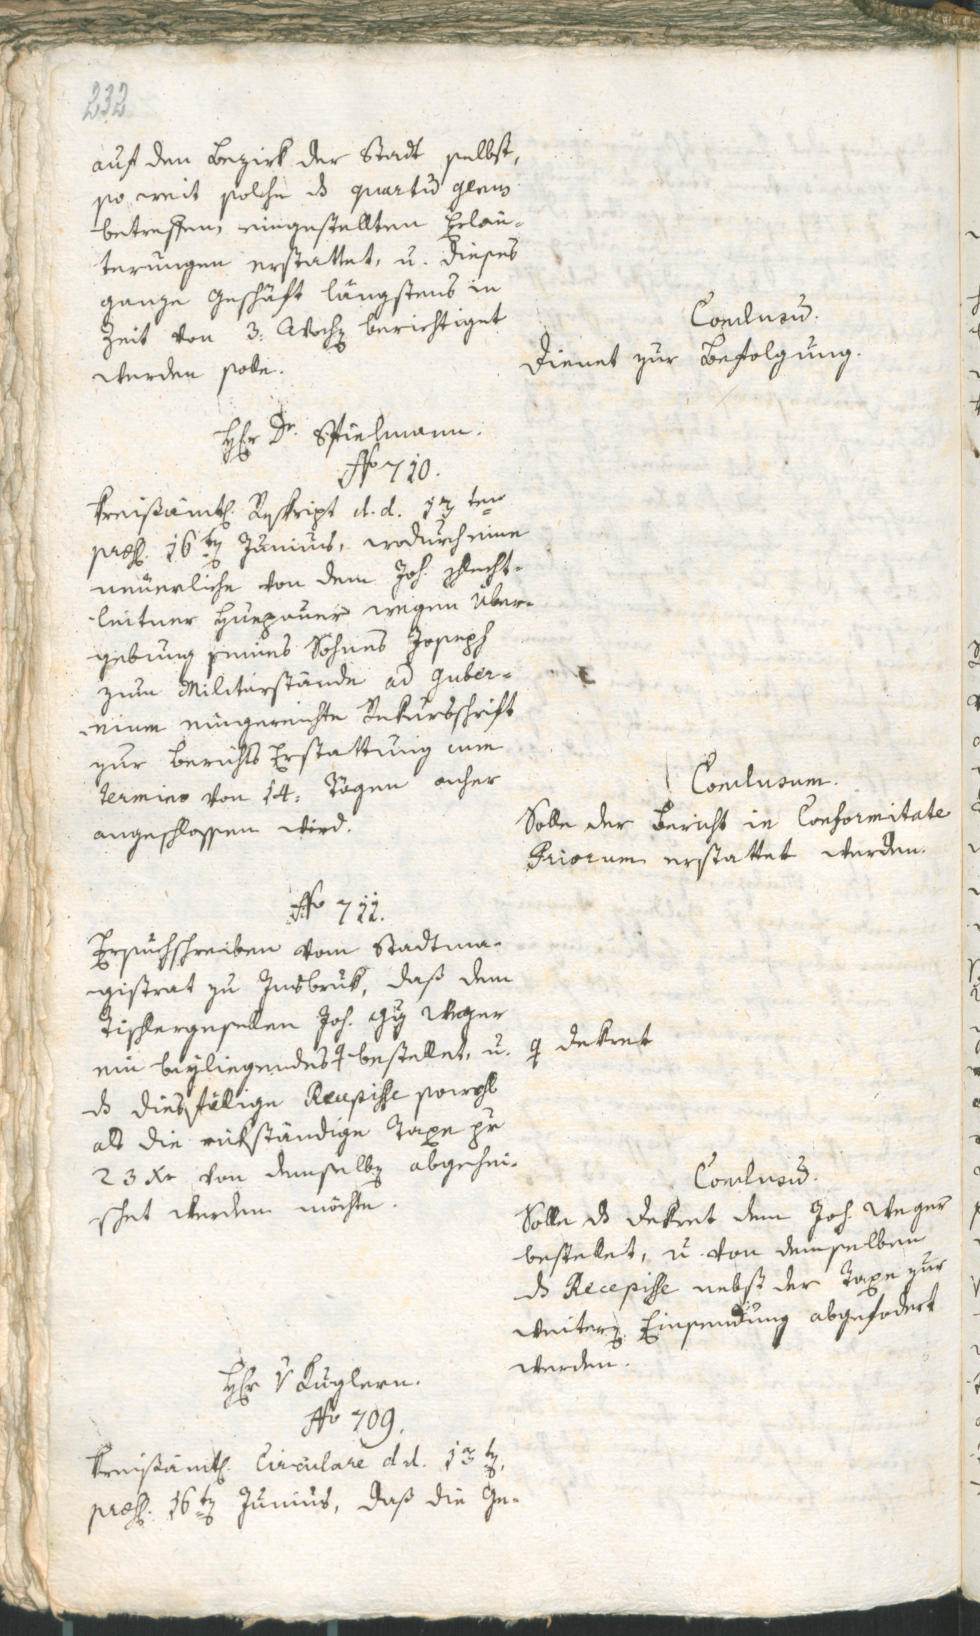 232
auf den Bezirk der Stadt selbst,
so weit solche ds quartũ glens
betreffen, eingestellten Erläu-
terungen erstattet, u. dieses
ganze Geschäft längstens in
Zeit von 3. Wochen berichtiget
werden solle.
Conclusũ.
Dienet zur Befolgung.
Hr Dr. Spielmann.
No 710.
Kreißämtl. Reskript d. d. 13ten
præs. 16ten Junius, wodurch eine
neuerliche von dem Joh.
leitner wegen Über-
gebung seines Sohnes Joseph
zum Militärstande ad Guber-
nium eingereichte Rekursschrift
zur Berichts Erstattung cum
termino von 14. Tägen anher
angeschlossen wird.
Conclusum.
Solle der Bericht in Conformitate
Priorum erstattet werden.
No 711.
Ersuchschreiben vom Stadtma-
gistrat zu Insbruk, daß dem
Tischlergesellen Joh. Weger
ein beyliegendes bestellet, u. dekret
ds diesfällige Recepisse sowohl
als die rükständige Taxe pr
23 Xr von demselben abgehei-
schet werden möchte.
Conclusũ.
Solle ds Dekret dem Joh. Weger
bestellet, u. von demselben
ds Recepisse nebst der Taxe zur
weitern Einsendung abgefodert
werden.
Hr v Kuglern.
No 709.
Kreißämtl. Circulare d. d. 13ten,
præs. 16ten Junius, daß die Ge-